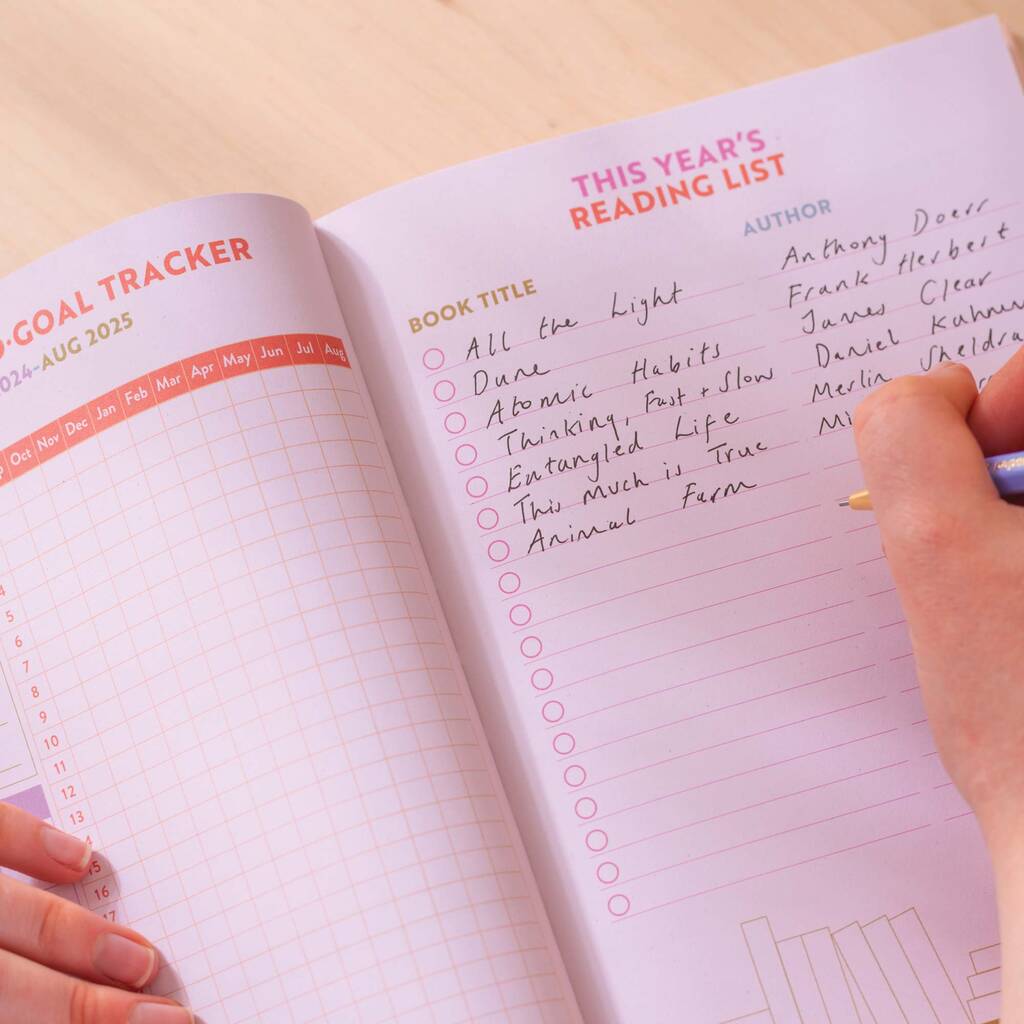 GOAL TRACKER
024-AUG 2025
Oct Nov Dec Jan Feb Mar Apr May Jun Jul Aug
4
5
6
7
8
9
10
11
12
13
15
16
17
THIS YEAR'S
READING LIST
BOOK TITLE AUTHOR
All the Light Anthony Doerr
Dune Frank Herbert
Atomic Habits James Clear
Thinking, Fast + Slow Daniel
Entangled Life Merlin
This Much is True
Animal Farm